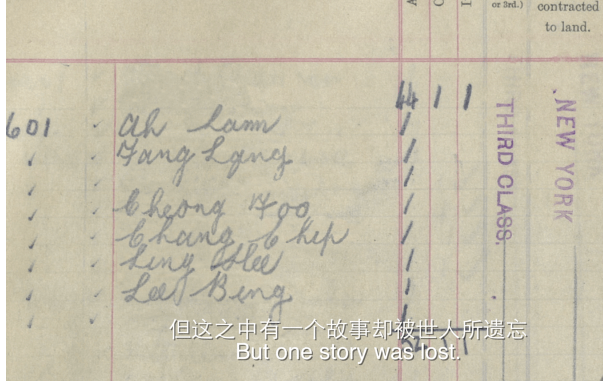 or 3rd.)
contracted
to land.
A
C
I
44 1 1
601
Ah Lam
Fang Lang
Cheong Foo
Chang Chip
Ling Hee
Lee Bing
THIRD CLASS.
NEW YORK
但这之中有一个故事却被世人所遗忘
But one story was lost.